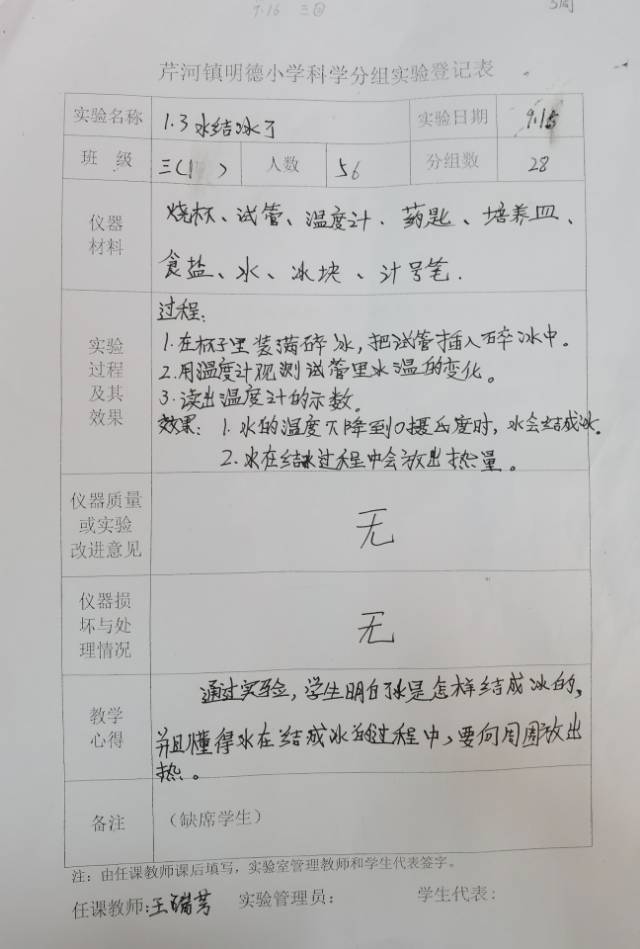 9.16 三日
3周
芹河镇明德小学科学分组实验登记表
实验名称 1.3水结冰了 实验日期 9.15
班 级 三(1) 人数 56 分组数 28
仪器
材料
烧杯、试管、温度计、药匙、培养皿、
食盐、水、冰块、计号笔.
实验
过程
及其
效果
过程:
1.在杯子里装满碎冰,把试管插入碎冰中。
2.用温度计观测试管里水温的变化。
3.读出温度计的示数。
效果: 1.水的温度下降到0摄氏度时,水会结成冰。
2.水在结冰过程中会放出热量。
仪器质量
或实验
改进意见
无
仪器损
坏与处
理情况
无
教学
心得
通过实验,学生明白水是怎样结成冰的,
并且懂得水在结成冰的过程中,要向周围放出
热。
备注 (缺席学生)
注:由任课教师课后填写,实验室管理教师和学生代表签字。
任课教师:王 芳 实验管理员: 学生代表: